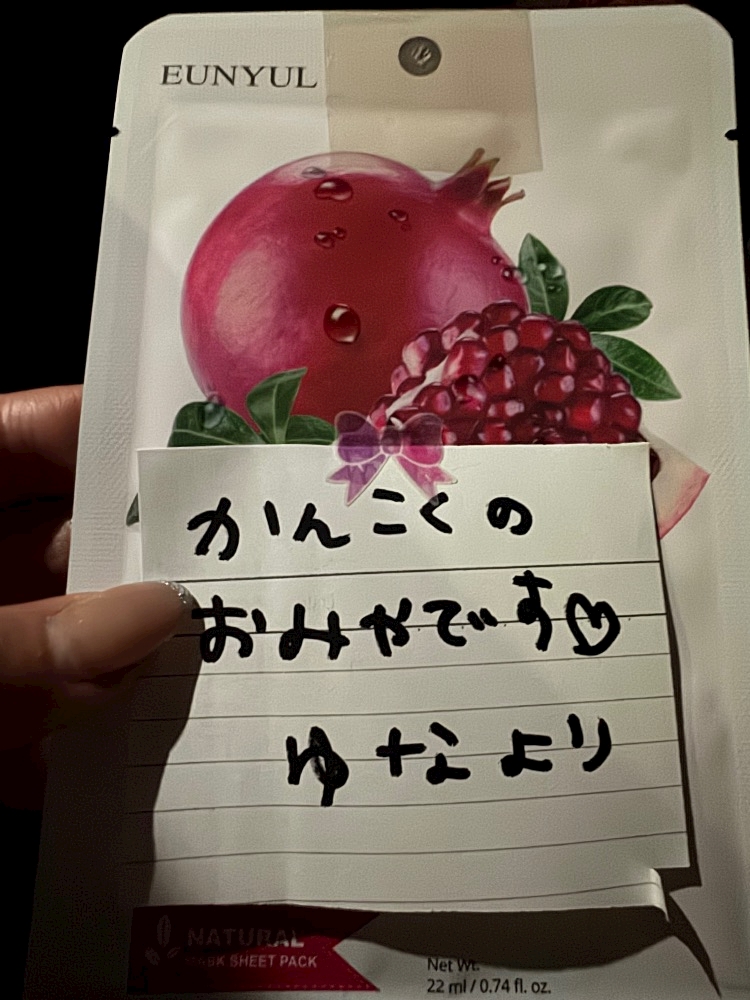 EUNYUL
かんこくの
おみやです♡
ゆなより
NATURAL
MASK SHEET PACK
Net Wt.
22 ml / 0.74 fl. oz.